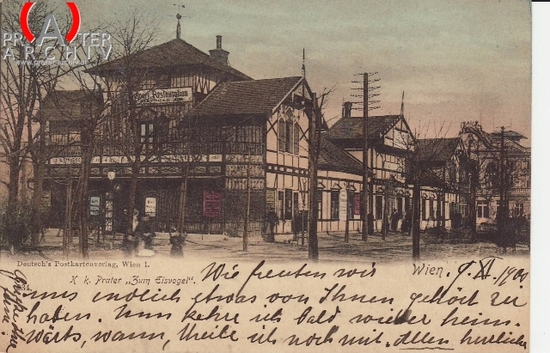 PRATER
ARCHIV
Restauration
Deutsch's Postkartenverlag, Wien I.
K. k. Prater „Zum Eisvogel".
Wien,
Wie freuten wir
uns endlich etwas von Ihnen gehört zu
haben. Nun kehre ich bald wieder heim-
wärts, wann, theile ich noch mit. Allen herzliche